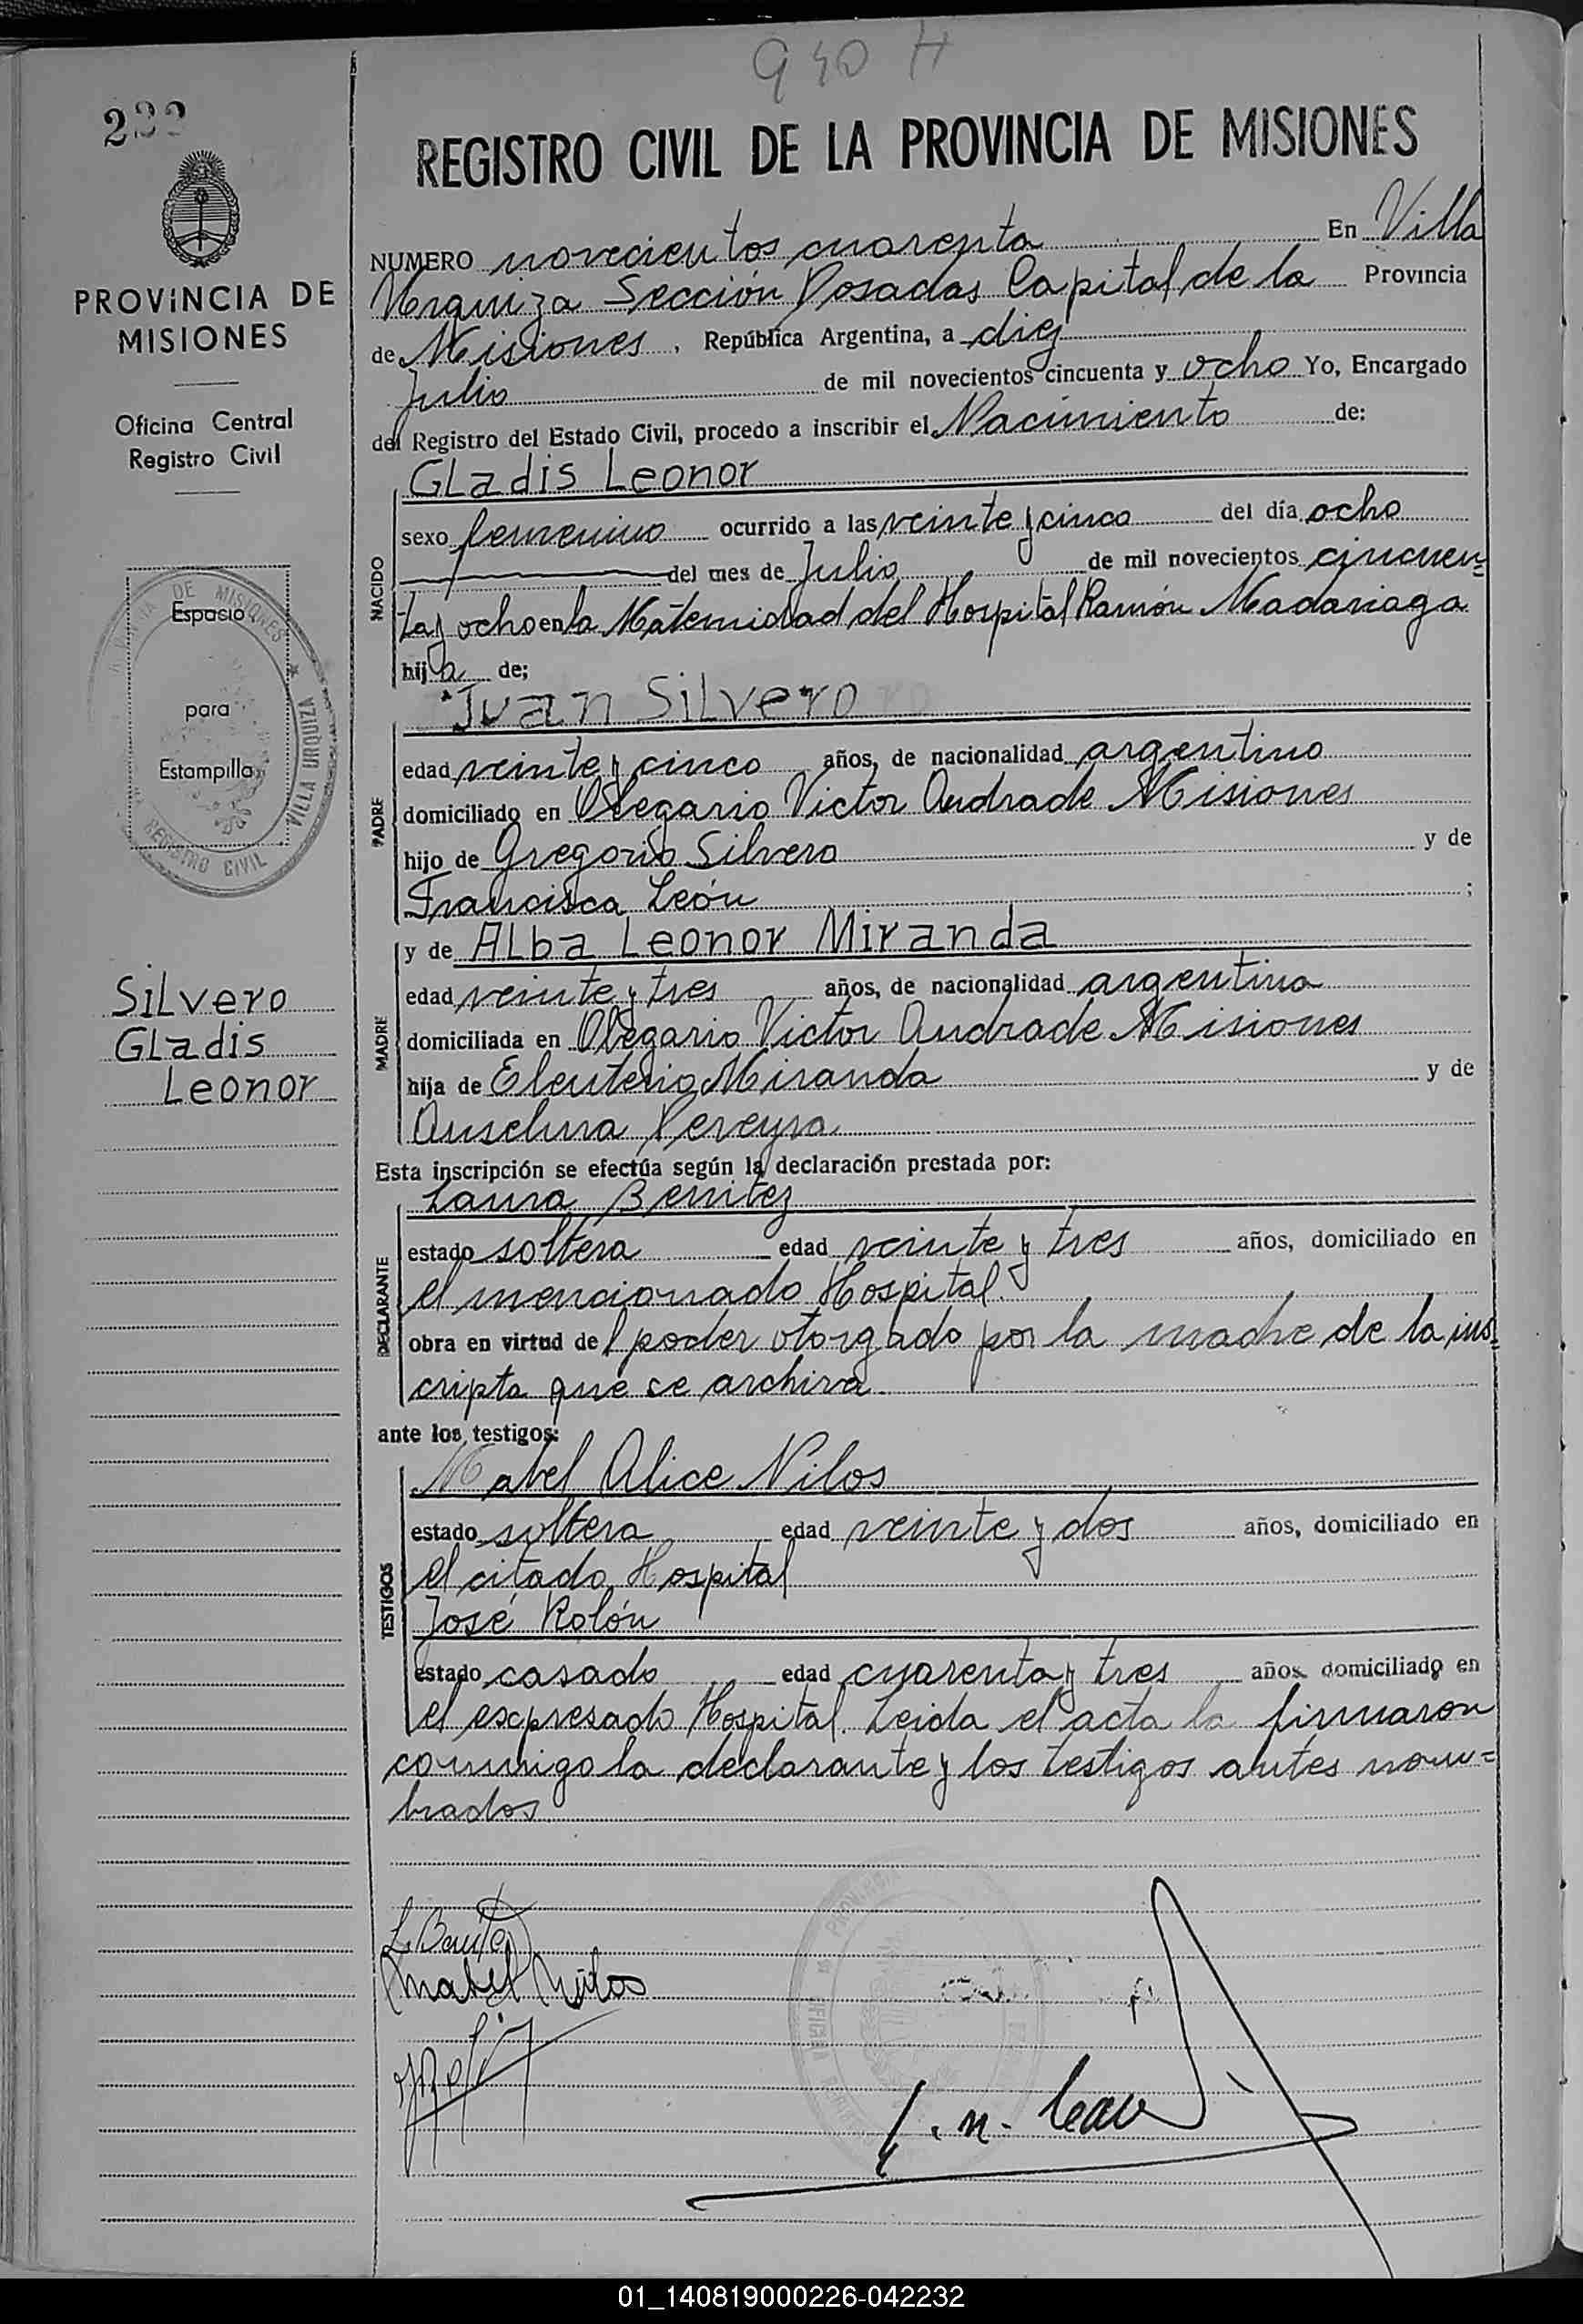 940 H
222
REGISTRO CIVIL DE LA PROVINCIA DE MISIONES
PROVINCIA DE
MISIONES
Oficina Central
Registro Civil
Espacio
para
Estampilla
DE MISIONES ★ VILLA URQUIZA
REGISTRO CIVIL
Silvero
Gladis
Leonor
NUMERO novecientos cuarenta En Villa
Urquiza Sección Posadas Capital de la Provincia
de Misiones, República Argentina, a diez
Julio de mil novecientos cincuenta y ocho Yo, Encargado
del Registro del Estado Civil, procedo a inscribir el Nacimiento de:
NACIDO
Gladis Leonor
sexo femenino ocurrido a las veinte y cinco del día ocho
del mes de Julio de mil novecientos cincuen=
ta y ocho en la Maternidad del Hospital Ramón Madariaga
hija de;
PADRE
Juan Silvero
edad veinte y cinco años, de nacionalidad argentino
domiciliado en Olegario Victor Andrade Misiones
hijo de Gregorio Silvero y de
Francisca León ;
MADRE
y de Alba Leonor Miranda
edad veinte y tres años, de nacionalidad argentina
domiciliada en Olegario Victor Andrade Misiones
hija de Eleuterio Miranda y de
Anselma Pereyra
Esta inscripción se efectúa según la declaración prestada por:
DECLARANTE
Laura Benitez
estado soltera edad veinte y tres años, domiciliado en
el mencionado Hospital.
obra en virtud del poder otorgado por la madre de la ins=
cripta que se archiva
ante los testigos:
TESTIGOS
Mabel Alice Nilos
estado soltera edad veinte y dos años, domiciliado en
el citado Hospital
José Rolón
estado casado edad cuarenta y tres años domiciliado en
el expresado Hospital. Leida el acta la firmaron
conmigo la declarante y los testigos antes nom=
brados
L Benitez
Mabel Nilos
01_140819000226-042232